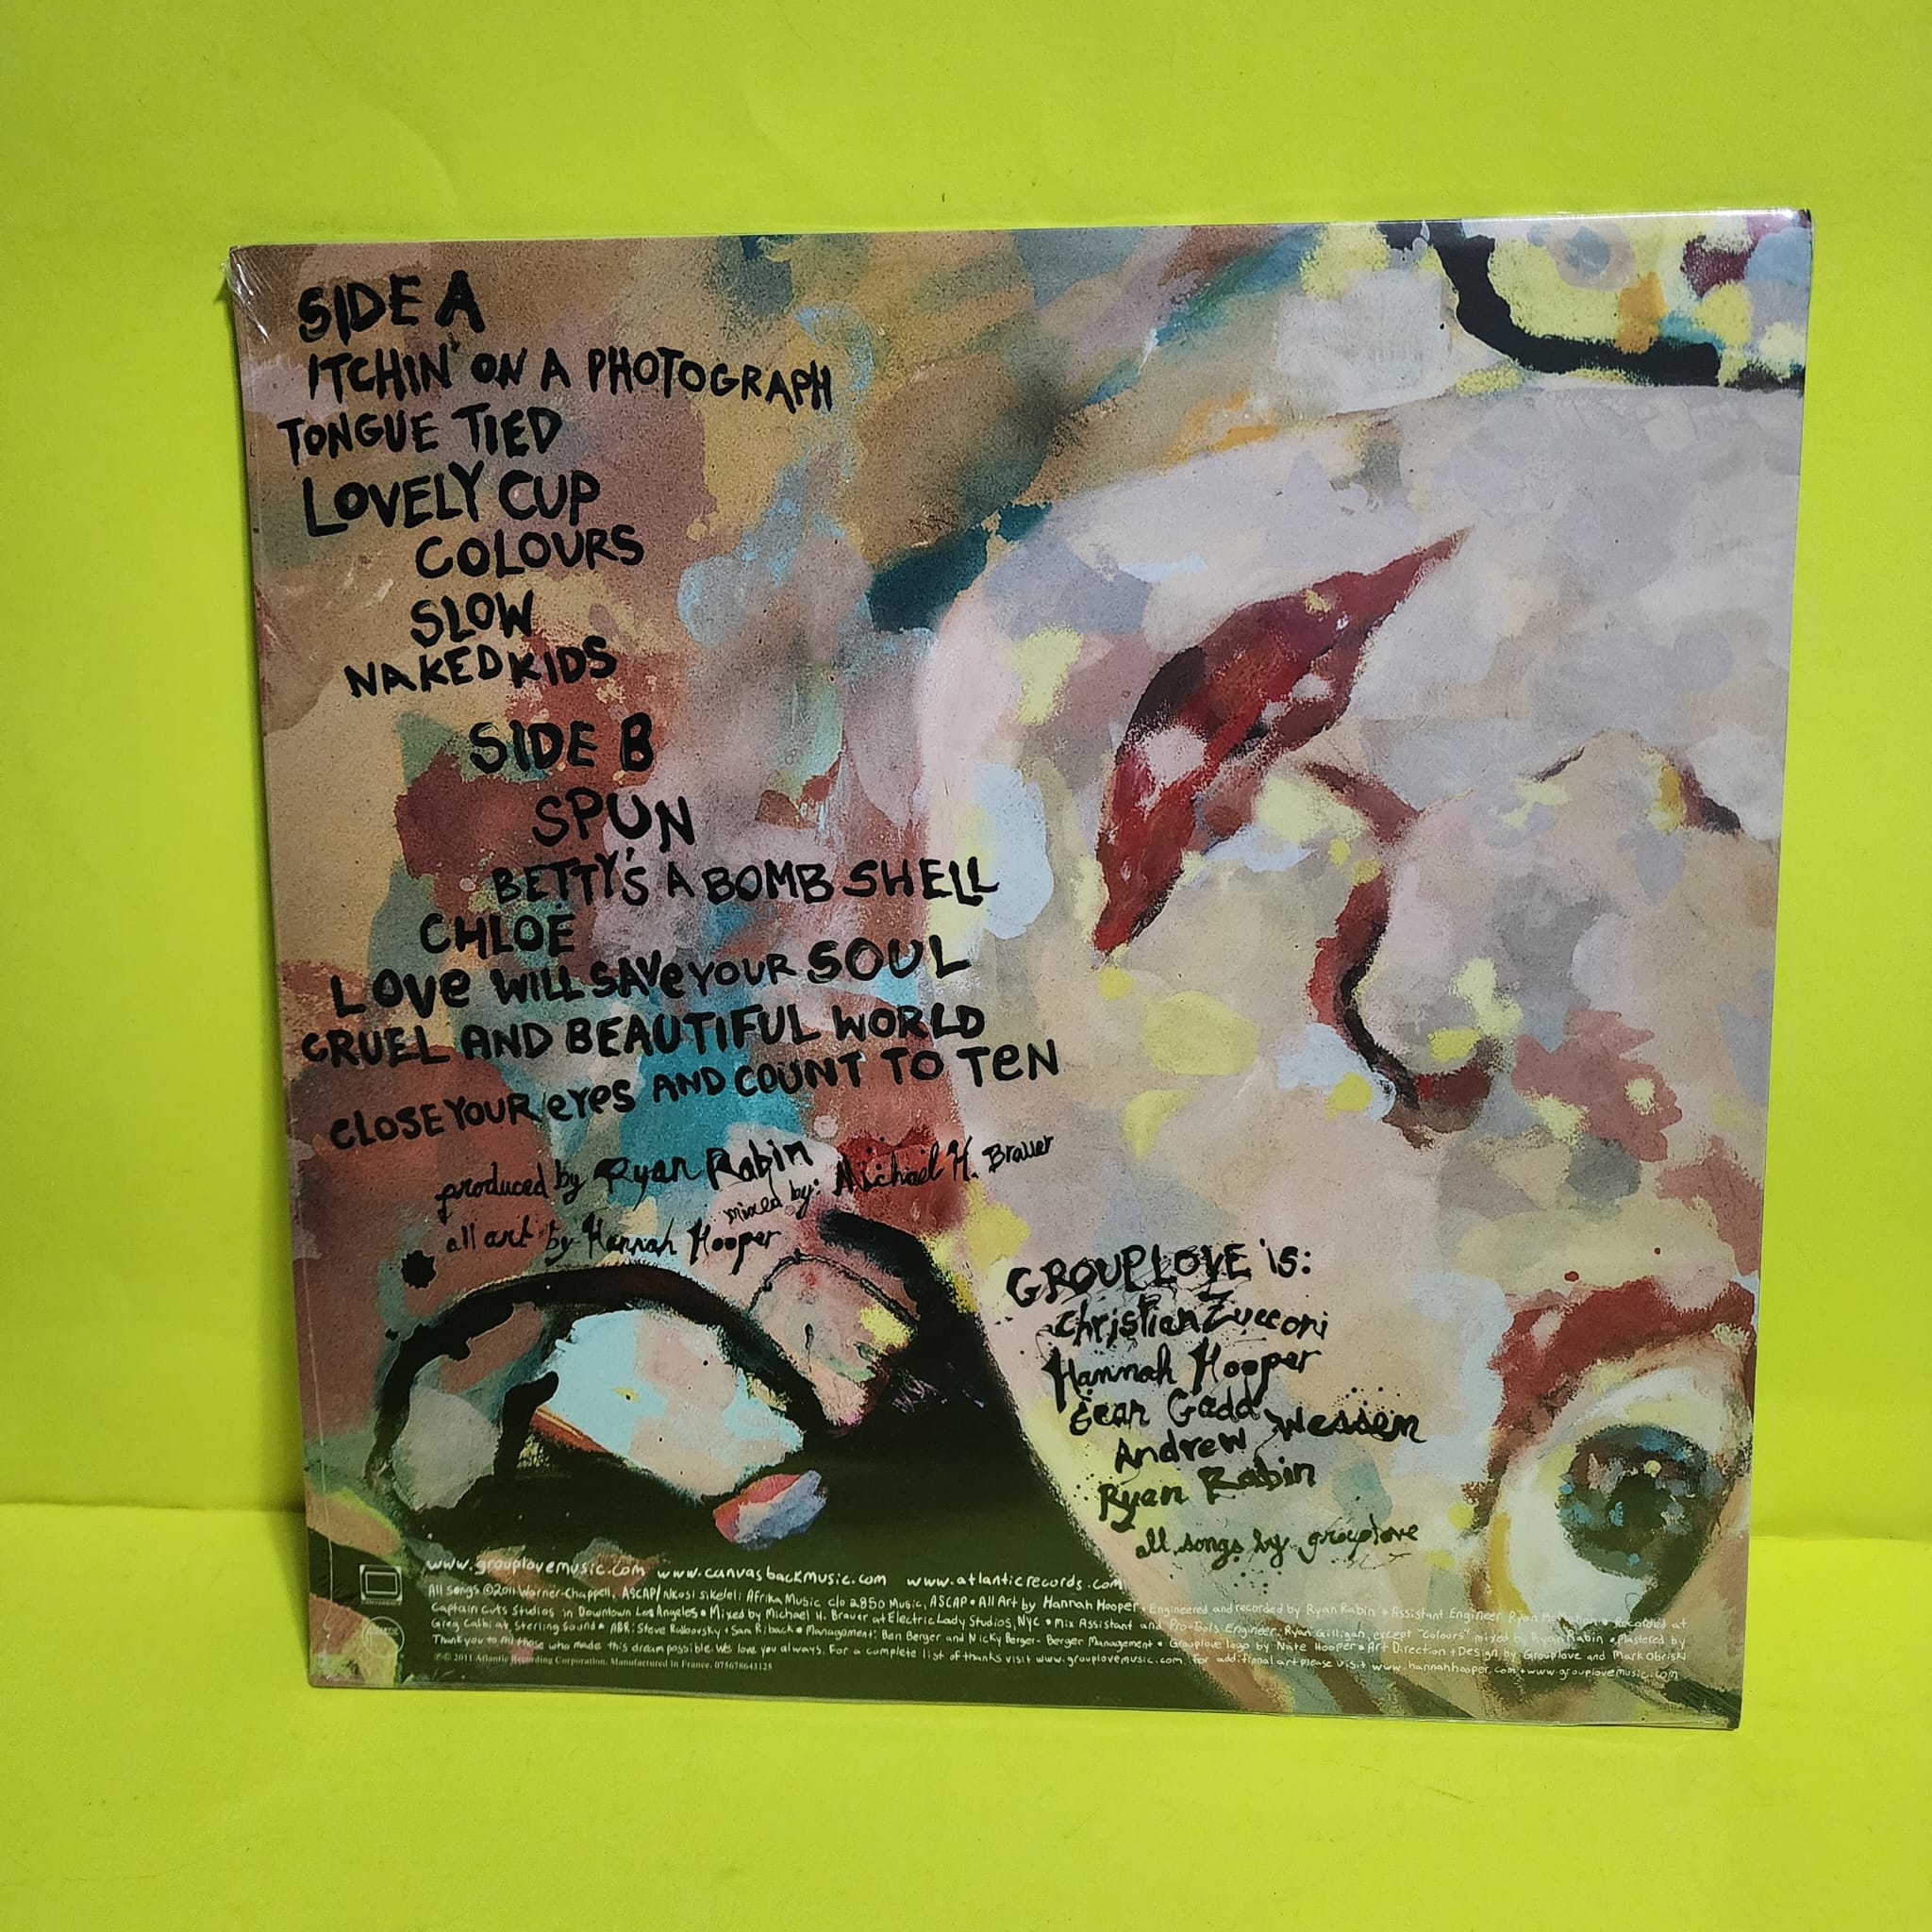 SIDE A
ITCHIN' ON A PHOTOGRAPH
TONGUE TIED
LOVELY CUP
COLOURS
SLOW
NAKED KIDS
SIDE B
SPUN
BETTY'S A BOMB SHELL
CHLOE
LOVe WILL SAVe YOUR SOUL
CRUEL AND BEAUTIFUL WORLD
CLOSE YOUR eYeS AND COUNT TO TeN
produced by Ryan Rabin
mixed by: Michael H. Brauer
all art by Hannah Hooper
GROUPLOVE is:
Christian Zucconi
Hannah Hooper
Sean Gadd
Andrew Wessen
Ryan Rabin
all songs by grouplove
www.grouplovemusic.com www.canvasbackmusic.com www.atlanticrecords.com
All songs ©2011 Warner-Chappell, ASCAP/ Nkosi Sikeleli Afrika Music c/o 2850 Music, ASCAP • All Art by Hannah Hooper • Engineered and recorded by Ryan Rabin • Assistant Engineer Ryan • Recorded at
Captain Cuts Studios in Downtown Los Angeles • Mixed by Michael H. Brauer at Electric Lady Studios, NYC • Mix Assistant and Pro-Tools Engineer: Ryan Gilligan, except "Colours" mixed by Ryan Rabin • Mastered by
Greg Calbi at Sterling Sound • A&R: Steve + Sam Riback • Management: Ben Berger and Nicky Berger- Berger Management • Grouplove logo by Nate Hooper • Art Direction + Design by Grouplove and Mark Obriski
Thank you to All those who made this dream possible. We love you always. For a complete list of thanks visit www.grouplovemusic.com. For additional art please visit www.hannahhooper.com + www.grouplovemusic.com
℗© 2011 Atlantic Recording Corporation. Manufactured in France. 075678643125